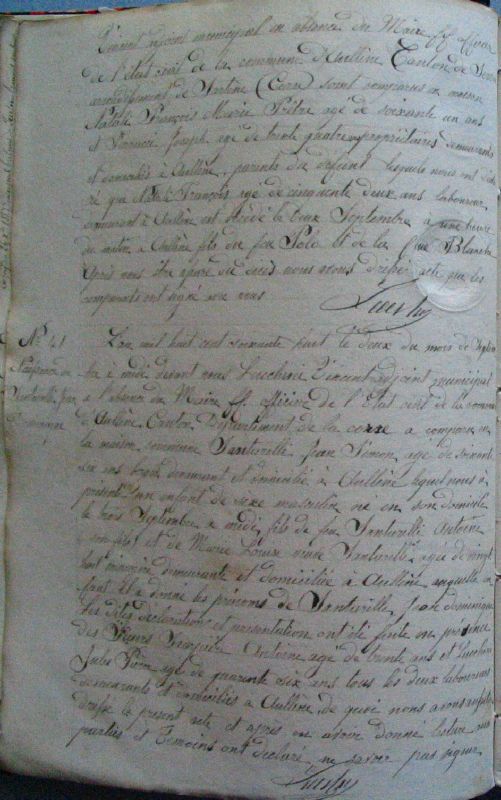 Vincent adjoint municipal en absence du Maire ff officier
de l'état civil de la commune d'Aullène Canton de
arrondissement de Sartène (Corse) sont comparus en maison
Natali François Marie Piètre agé de soixante un ans
et Joseph agé de trente quatre ans propriétaires demeurants
et domiciliés à Aullène, parents du defunt lesquels nous ont
ré que Natali François agé de cinquante deux ans laboureur
demeurant à Aullène est décédé le deux Septembre a une heure
du matin a Aullène fils du feu Polo et de la feue Blanche
Après nous être assuré du décès nous avons dressé acte que les
comparants ont signé avec nous
N° 41
Naissance de
Santarelli Jean
Dominique
L'an mil huit cent soixante huit le deux du mois de Septem
bre à midi devant nous Lucchini Vincent adjoint municipal
a l'absence du Maire ff officier de l'état civil de la commune
d'Aullène Canton Département de la corse a comparu en
la maison commune Santarelli Jean Simon agé de soixante
six ans demeurant et domicilié à Aullène lequel nous a
présenté un enfant de sexe masculin né en son domicile
le Septembre a midi fils de feu Santarelli Antoine
son fils et de Marie Louise veuve Santarelli agée de vingt
huit ménagère demeurante et domiciliée à Aullène auquel en
fant il a donné les prénoms de Santarelli Jean dominique
Les dites déclaration et présentation ont été faite en présence
des Sieurs François Antoine agé de trente ans et Lucchini
Jules Pierre agé de quarante six ans tous les deux laboureurs
demeurants et domiciliés a Aullène de quoi nous avons
dressé le présent acte et après en avoir donné lecture aux
parties et Témoins ont déclaré ne savoir pas signer